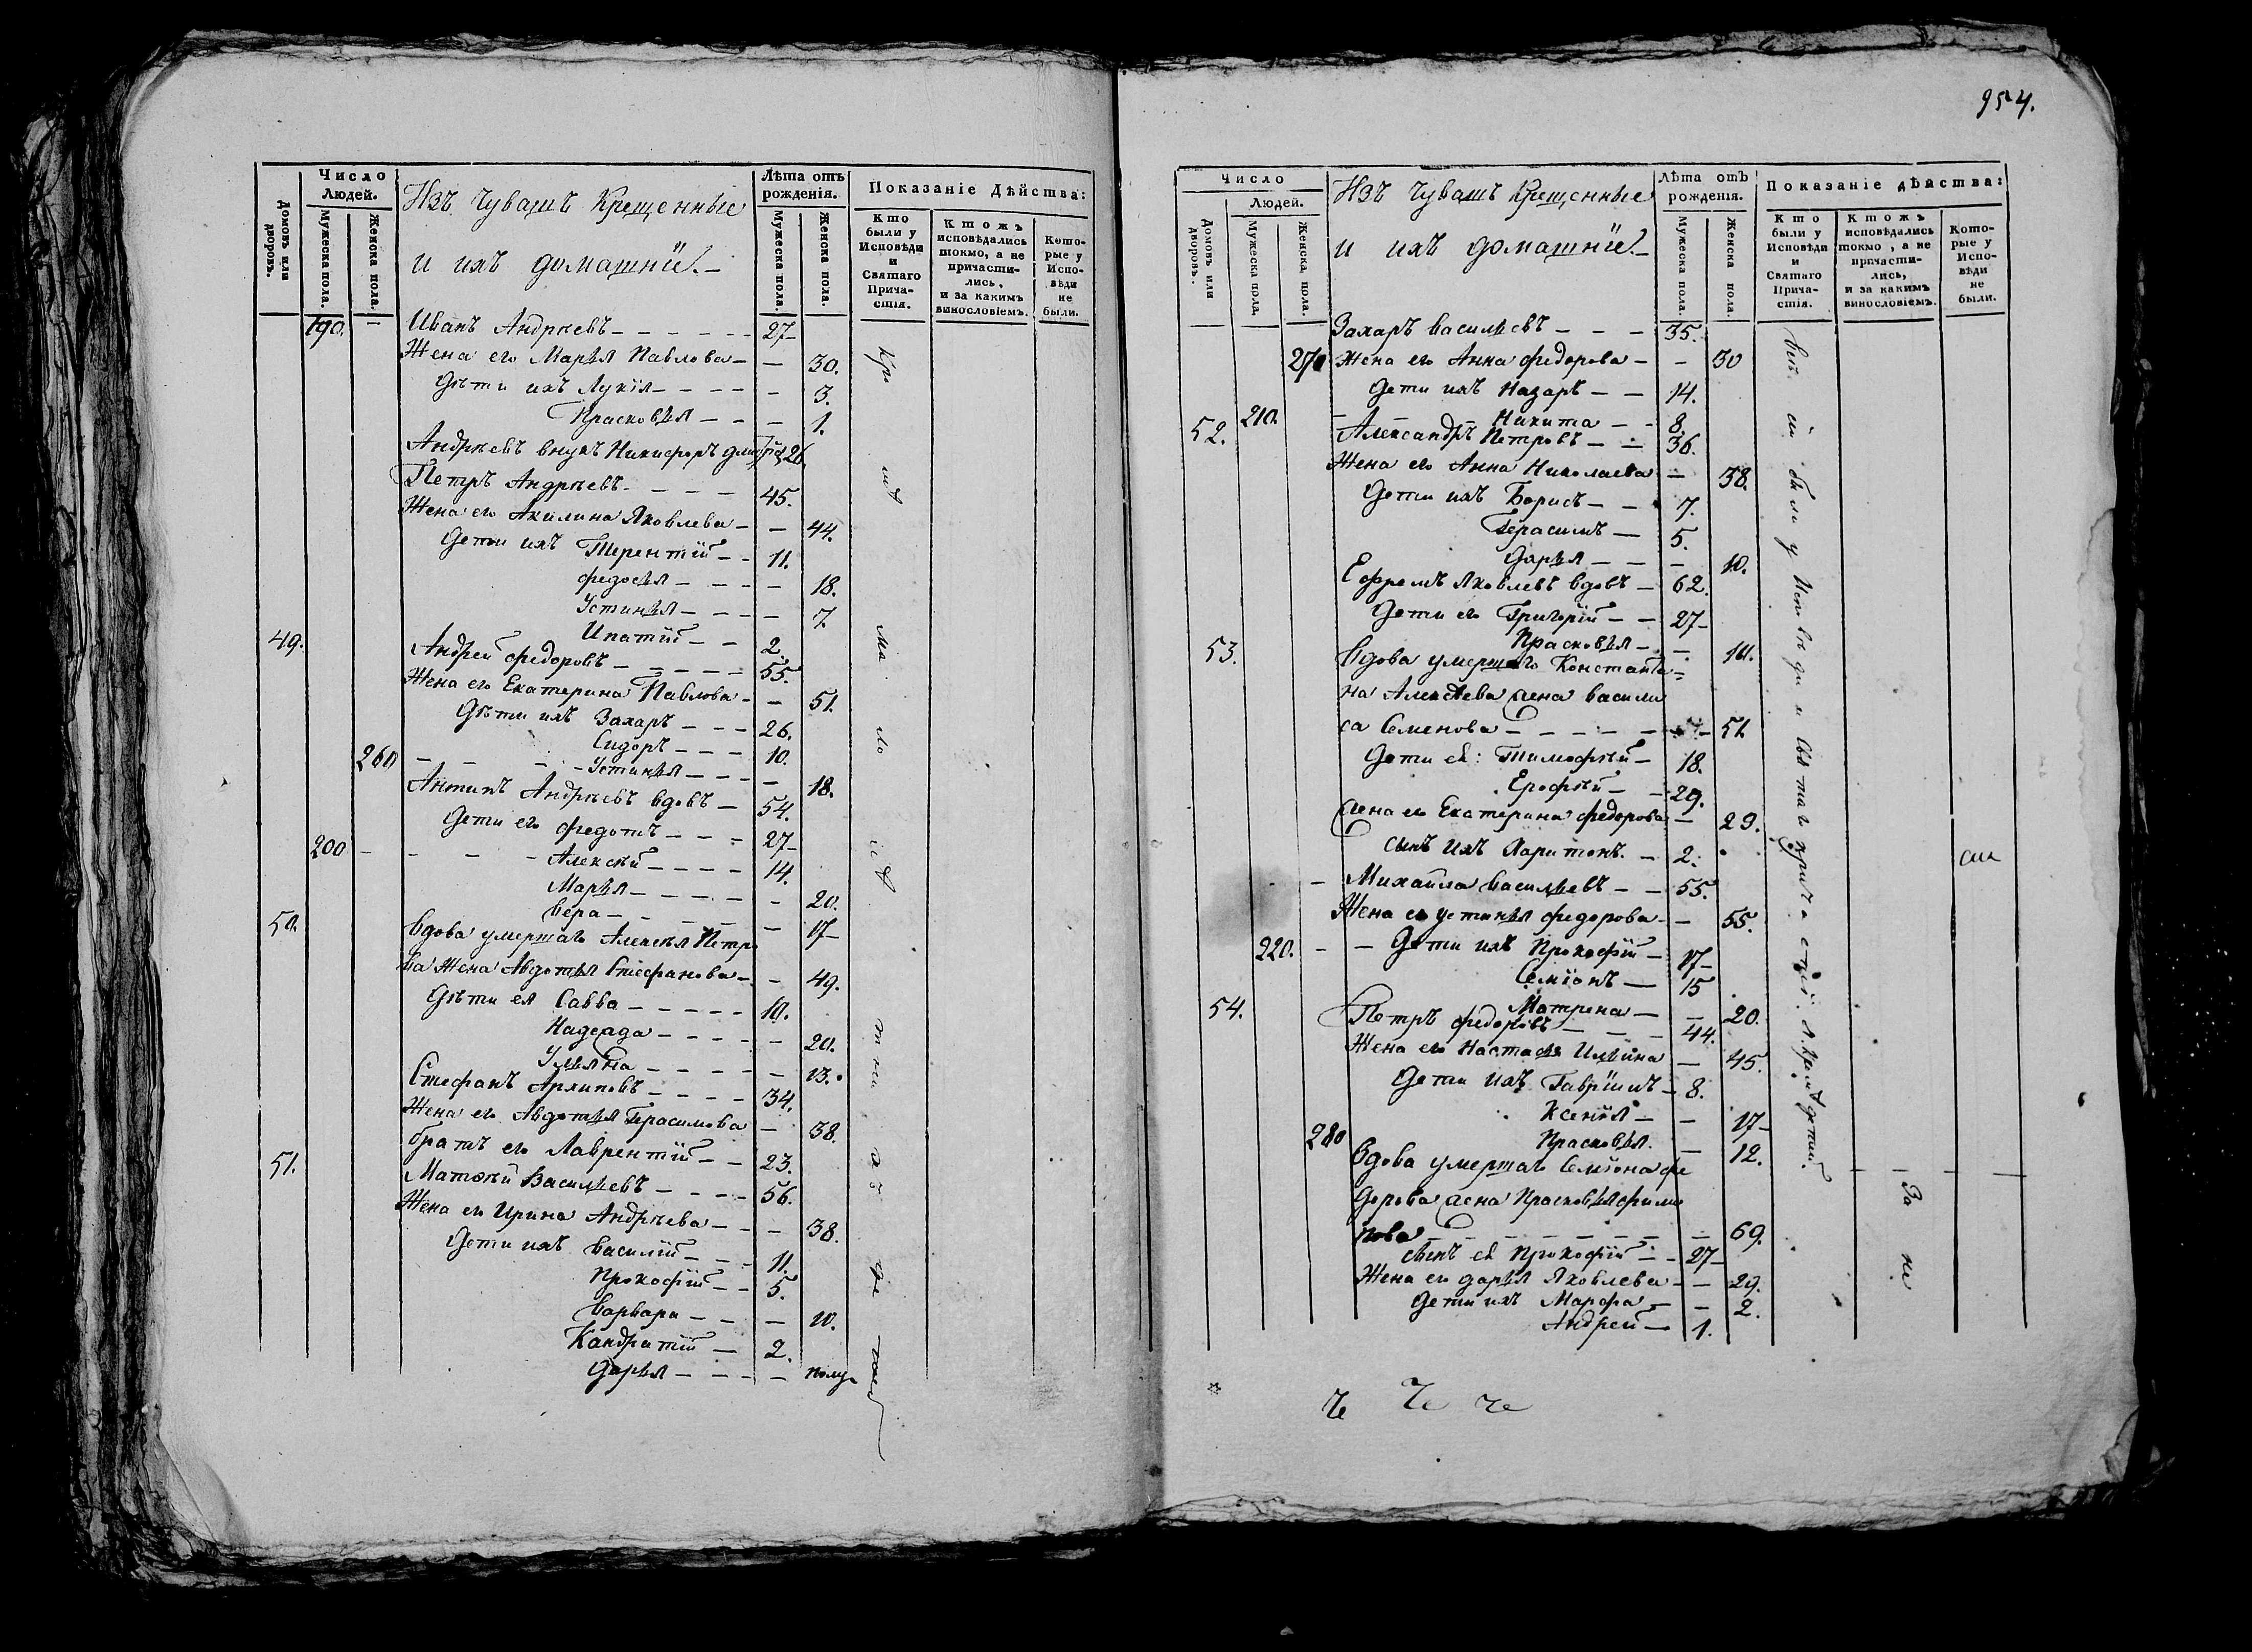 954.
Число Людей.
Домовъ или дворовъ.
Мужеска пола.
Женска пола.
Изъ Чувашъ Крещенные
и ихъ домашніе.
Лѣта отъ рожденія.
Мужеска пола.
Женска пола.
Показаніе Дѣйства:
Кто были у Исповѣди и Святаго Причастія.
Ктожъ исповѣдались токмо, а не причастились, и за какимъ винословіемъ.
Которые у Исповѣди не были.
190. Иванъ Андрѣевъ 27
Жена его Марья Павлова 30.
Дѣти ихъ Лукія 3.
Прасковья 1.
Андрѣевъ внукъ Никифоръ 26
Петръ Андрѣевъ 45.
Жена его Акилина Яковлева 44.
Дети ихъ Терентій 11.
Федосья 18.
Устинья 7.
Ипатій 2.
49. Андрей Федоровъ 55.
Жена его Екатерина Павлова 51.
Дѣти ихъ Захаръ 26.
Сидоръ 10.
260 Устинья 18.
Антипъ Андрѣевъ вдовъ 54.
Дети его Федотъ 27
200 Алексѣй 14.
Марья 20.
Вера 17
50. Вдова умершаго Алексѣя Петро
ва Жена Авдотья Стефанова 49.
Дѣти ея Савва 10.
Надежда 20.
Ульяна 13.
Стефанъ Архиповъ 34.
Жена его Авдотья Герасимова 38.
братъ его Лаврентій 23.
51. Матвѣй Васильевъ 56.
Жена его Ирина Андрѣева 38.
Дети ихъ Василій 11.
Прокофій 5.
Варвара 10.
Кандратій 2.
Дарья полу
Число Людей.
Домовъ или дворовъ.
Мужеска пола.
Женска пола.
Изъ Чувашъ Крещенные
и ихъ домашніе.
Лѣта отъ рожденія.
Мужеска пола.
Женска пола.
Показаніе дѣйства:
Кто были у Исповѣди и Святаго Причастія.
Ктожъ исповѣдались токмо, а не причастились, и за какимъ винословіемъ.
Которые у Исповѣди не были.
Захаръ Васильевъ 35.
270 Жена его Анна Федорова 30
Дети ихъ Назаръ 14.
210. Никита 8.
52. Александръ Петровъ 36.
Жена его Анна Николаева 38.
Дети ихъ Борисъ 7.
Герасимъ 5.
Дарья 10.
Ефремъ Яковлевъ вдовъ 62.
Дети его Григорій 27
Прасковья 14.
53. Вдова умершаго Константи
на Алексѣева жена Васили
са Семенова 51.
Дети ея: Тимофѣй 18.
Ерофѣй 29.
Жена его Екатерина Федорова 29.
сынъ ихъ Харитонъ. 2.
Михайла Васильевъ 55.
Жена его Устинья Федорова 55.
220. Дети ихъ Прокофій 17
Семіонъ 15
Матрена 20.
54. Петръ Федоровъ 44.
Жена его Настасья Ильина 45.
Дети ихъ Гавріилъ 8.
Ксенія 17
280 Прасковья. 12.
Вдова умершаго Семіона Фе
дорова жена Прасковья Фили
пова 69.
сынъ ея Прокофій 27
Жена его Дарья Яковлева 29.
Дети ихъ Марфа 2.
Андрей 1.
За не
Че Че че